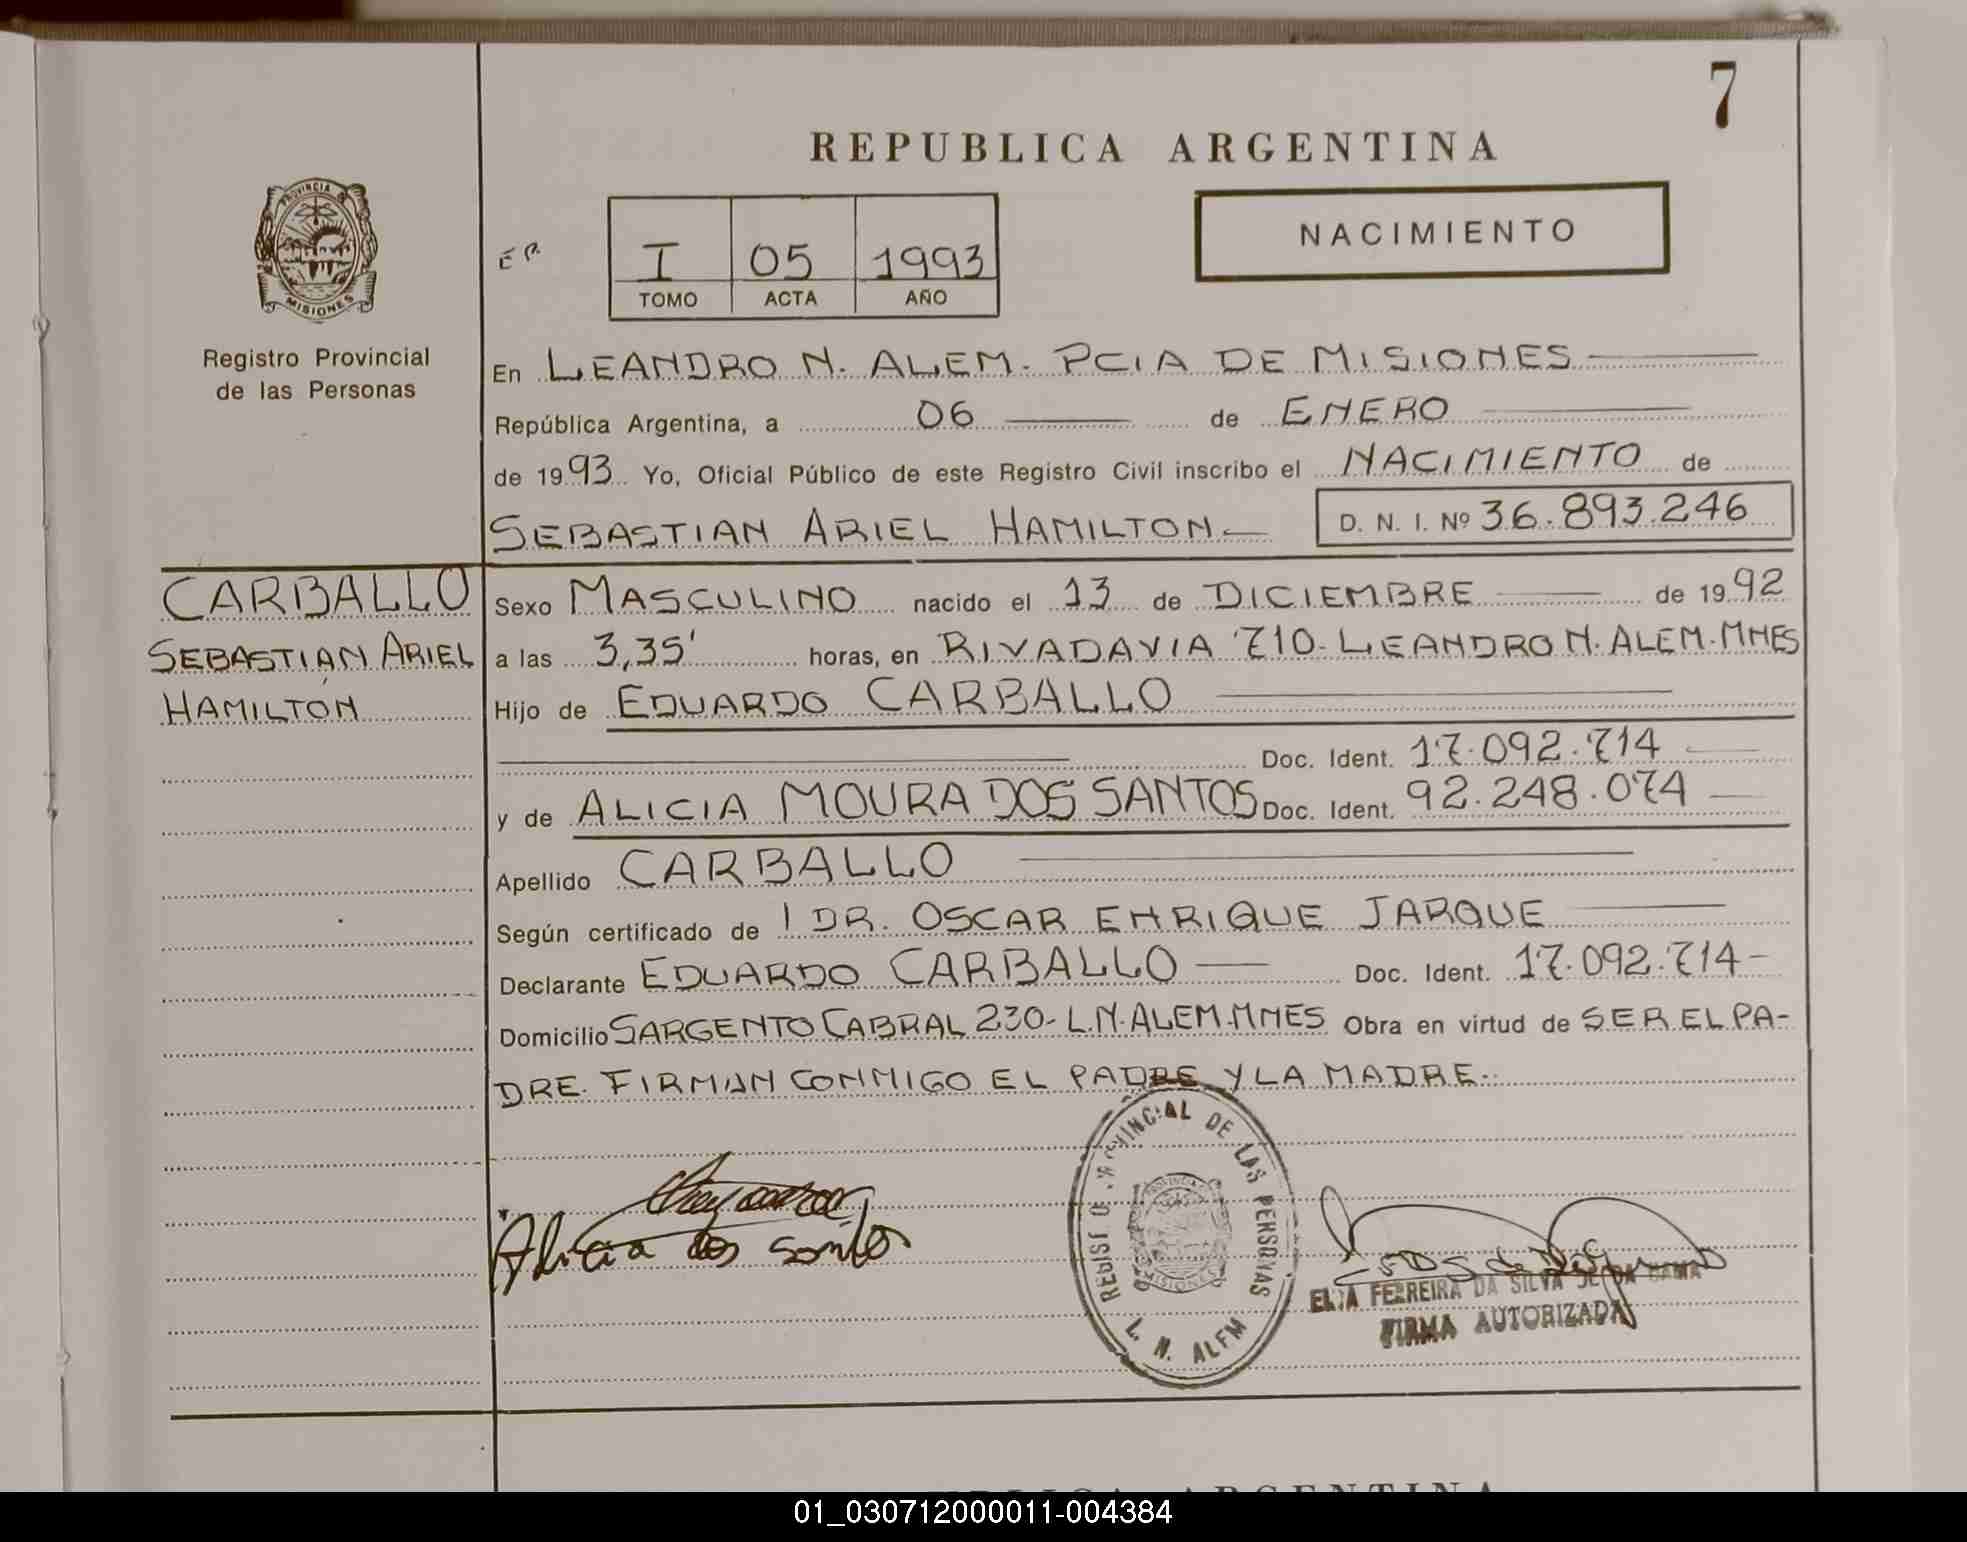 7
REPUBLICA ARGENTINA
PROVINCIA DE
MISIONES
Registro Provincial
de las Personas
I 05 1993
TOMO ACTA AÑO
NACIMIENTO
En LEANDRO N. ALEM. PCIA DE MISIONES
República Argentina, a 06 de ENERO
de 1993 Yo, Oficial Público de este Registro Civil inscribo el NACIMIENTO de
SEBASTIAN ARIEL HAMILTON.- D. N. I. Nº 36.893.246
CARBALLO
SEBASTIAN ARIEL
HAMILTON
Sexo MASCULINO nacido el 13 de DICIEMBRE de 1992
a las 3,35' horas, en RIVADAVIA 710- LEANDRO N. ALEM. MNES
Hijo de EDUARDO CARBALLO
Doc. Ident. 17.092.714
y de ALICIA MOURA DOS SANTOS Doc. Ident. 92.248.074
Apellido CARBALLO
Según certificado de l DR. OSCAR ENRIQUE JARQUE
Declarante EDUARDO CARBALLO Doc. Ident. 17.092.714-
Domicilio SARGENTO CABRAL 230- L.N. ALEM. MNES Obra en virtud de SER EL PA-
DRE. FIRMAN CONMIGO EL PADRE Y LA MADRE.
Alicia dos santos
REGISTRO PROVINCIAL DE LAS PERSONAS
PROVINCIA DE
MISIONES
L. N. ALEM
FERREIRA DA SILVA DE
FIRMA AUTORIZADA
REPUBLICA ARGENTINA
01_030712000011-004384